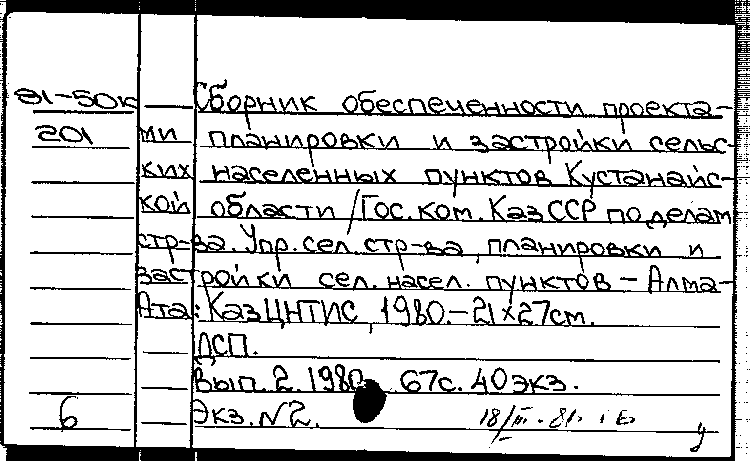 81-50к Сборник обеспеченности проекта-
201 ми планировки и застройки сельс-
ких населенных пунктов Кустанайс-
кой области / Гос. ком. Каз ССР по делам
стр-ва. Упр. сел. стр-ва, планировки и
застройки сел. насел. пунктов - Алма-
Ата: КазЦНТИС, 1980. - 21×27см.
ДСП.
Вып. 2. 1980. 67с. 40экз.
6 Экз. N2. 18/III-81.
у